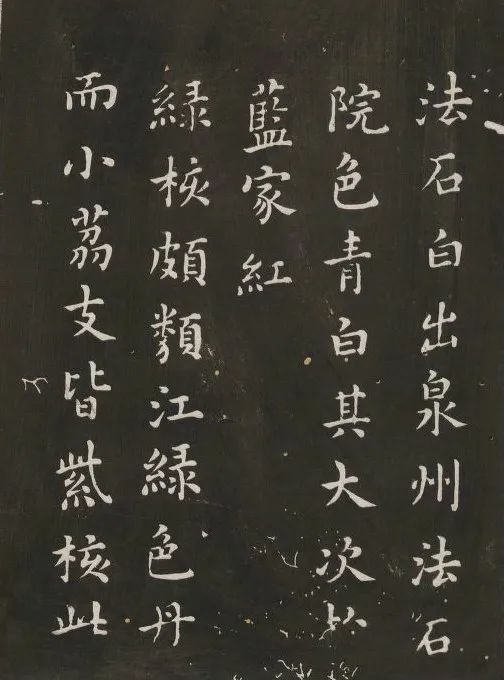 法石白出泉州法石
院色青白其大次於
藍家紅
綠核頗類江綠色丹
而小荔支皆紫核此